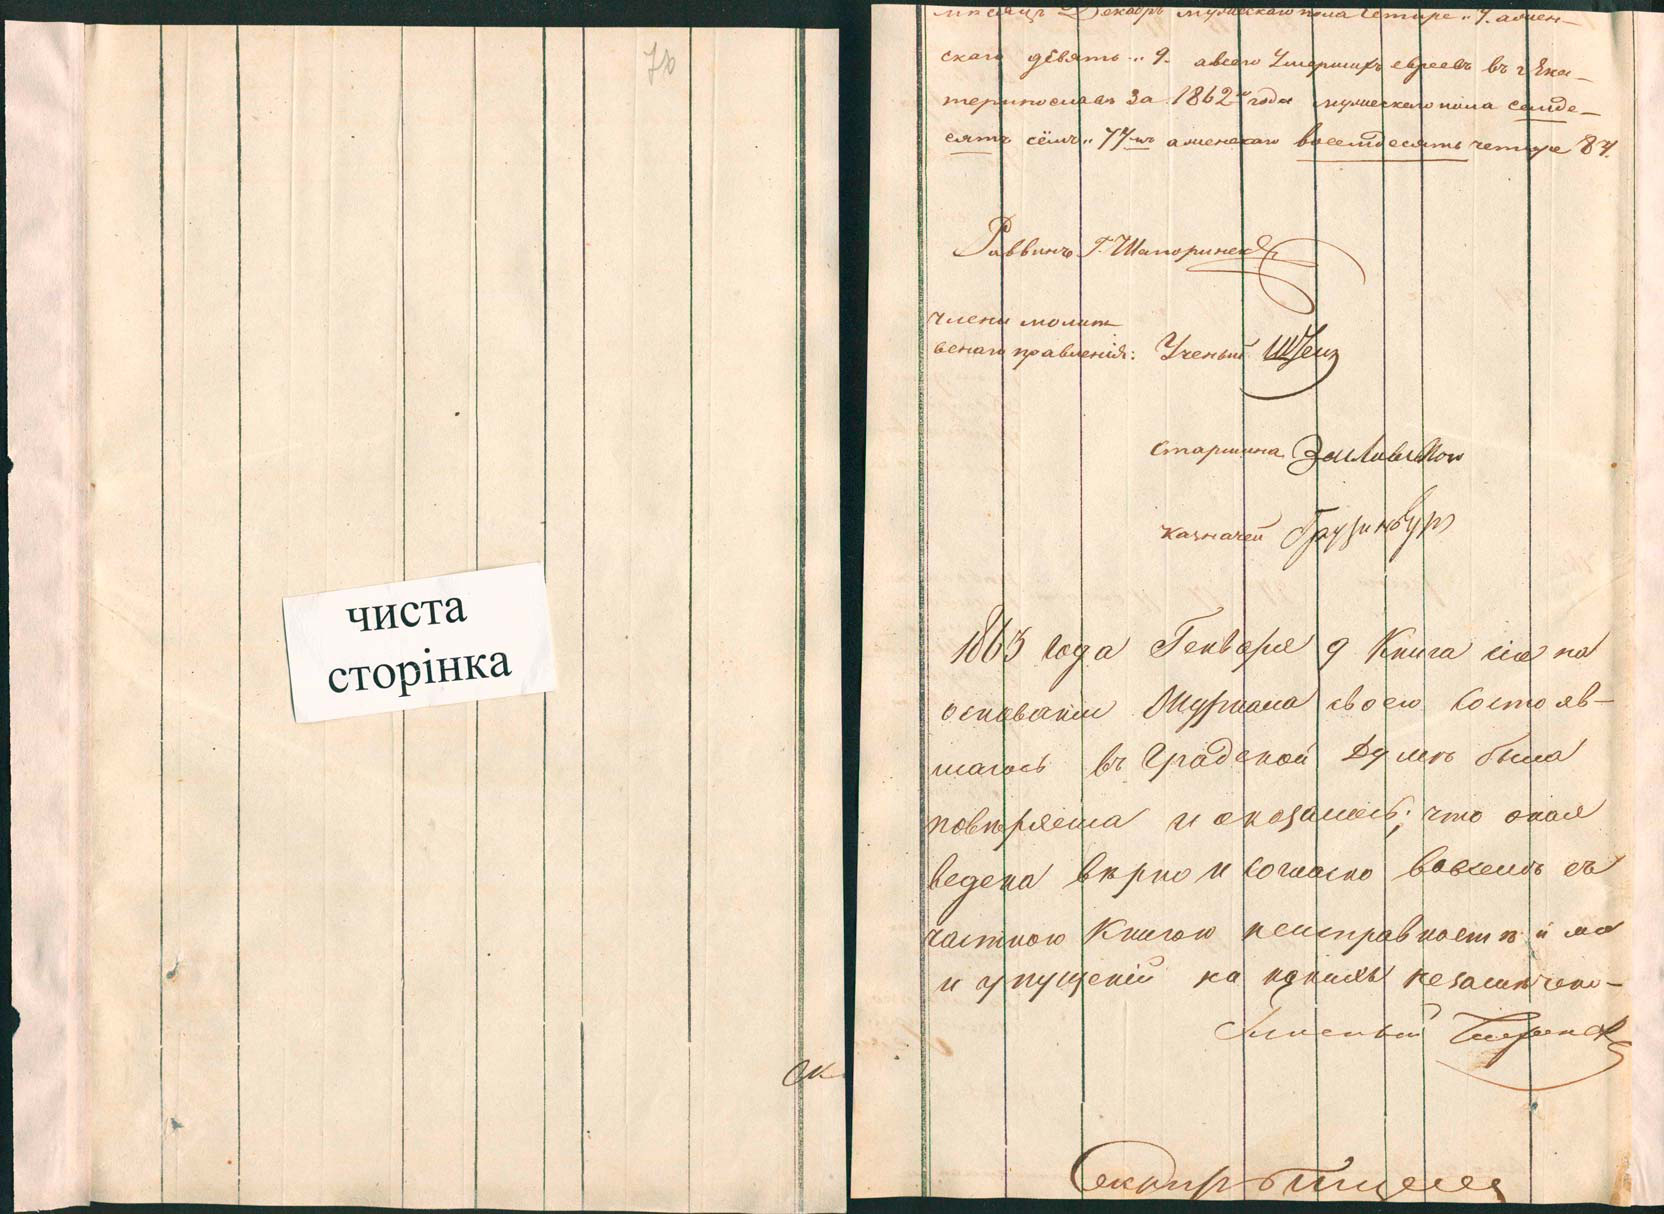 70
чиста
сторінка
Ск
мѣсяцъ Декабрь мужескаго пола четыре „ 4. а жен-
скаго девять „ 9. а всего Умершихъ евреевъ въ г Ека-
теринославѣ за 1862 года мужескаго пола семде-
сятъ сёмъ „ 77 а женскаго восемдесятъ четыре 84.
Раввинъ Г. Шапоринск
члены молит
венаго правленія: Ученый
старшина
казначей
1863 года Генваря 9 Книга сія на
основаніи Журнала своего состояв-
шагось въ Градской Думѣ была
повѣряема и оказалось; что оная
ведена вѣрно и согласно во всемъ съ
частною Книгою неисправностей
и упущеній на незамѣчено-
Гласный
Секкар